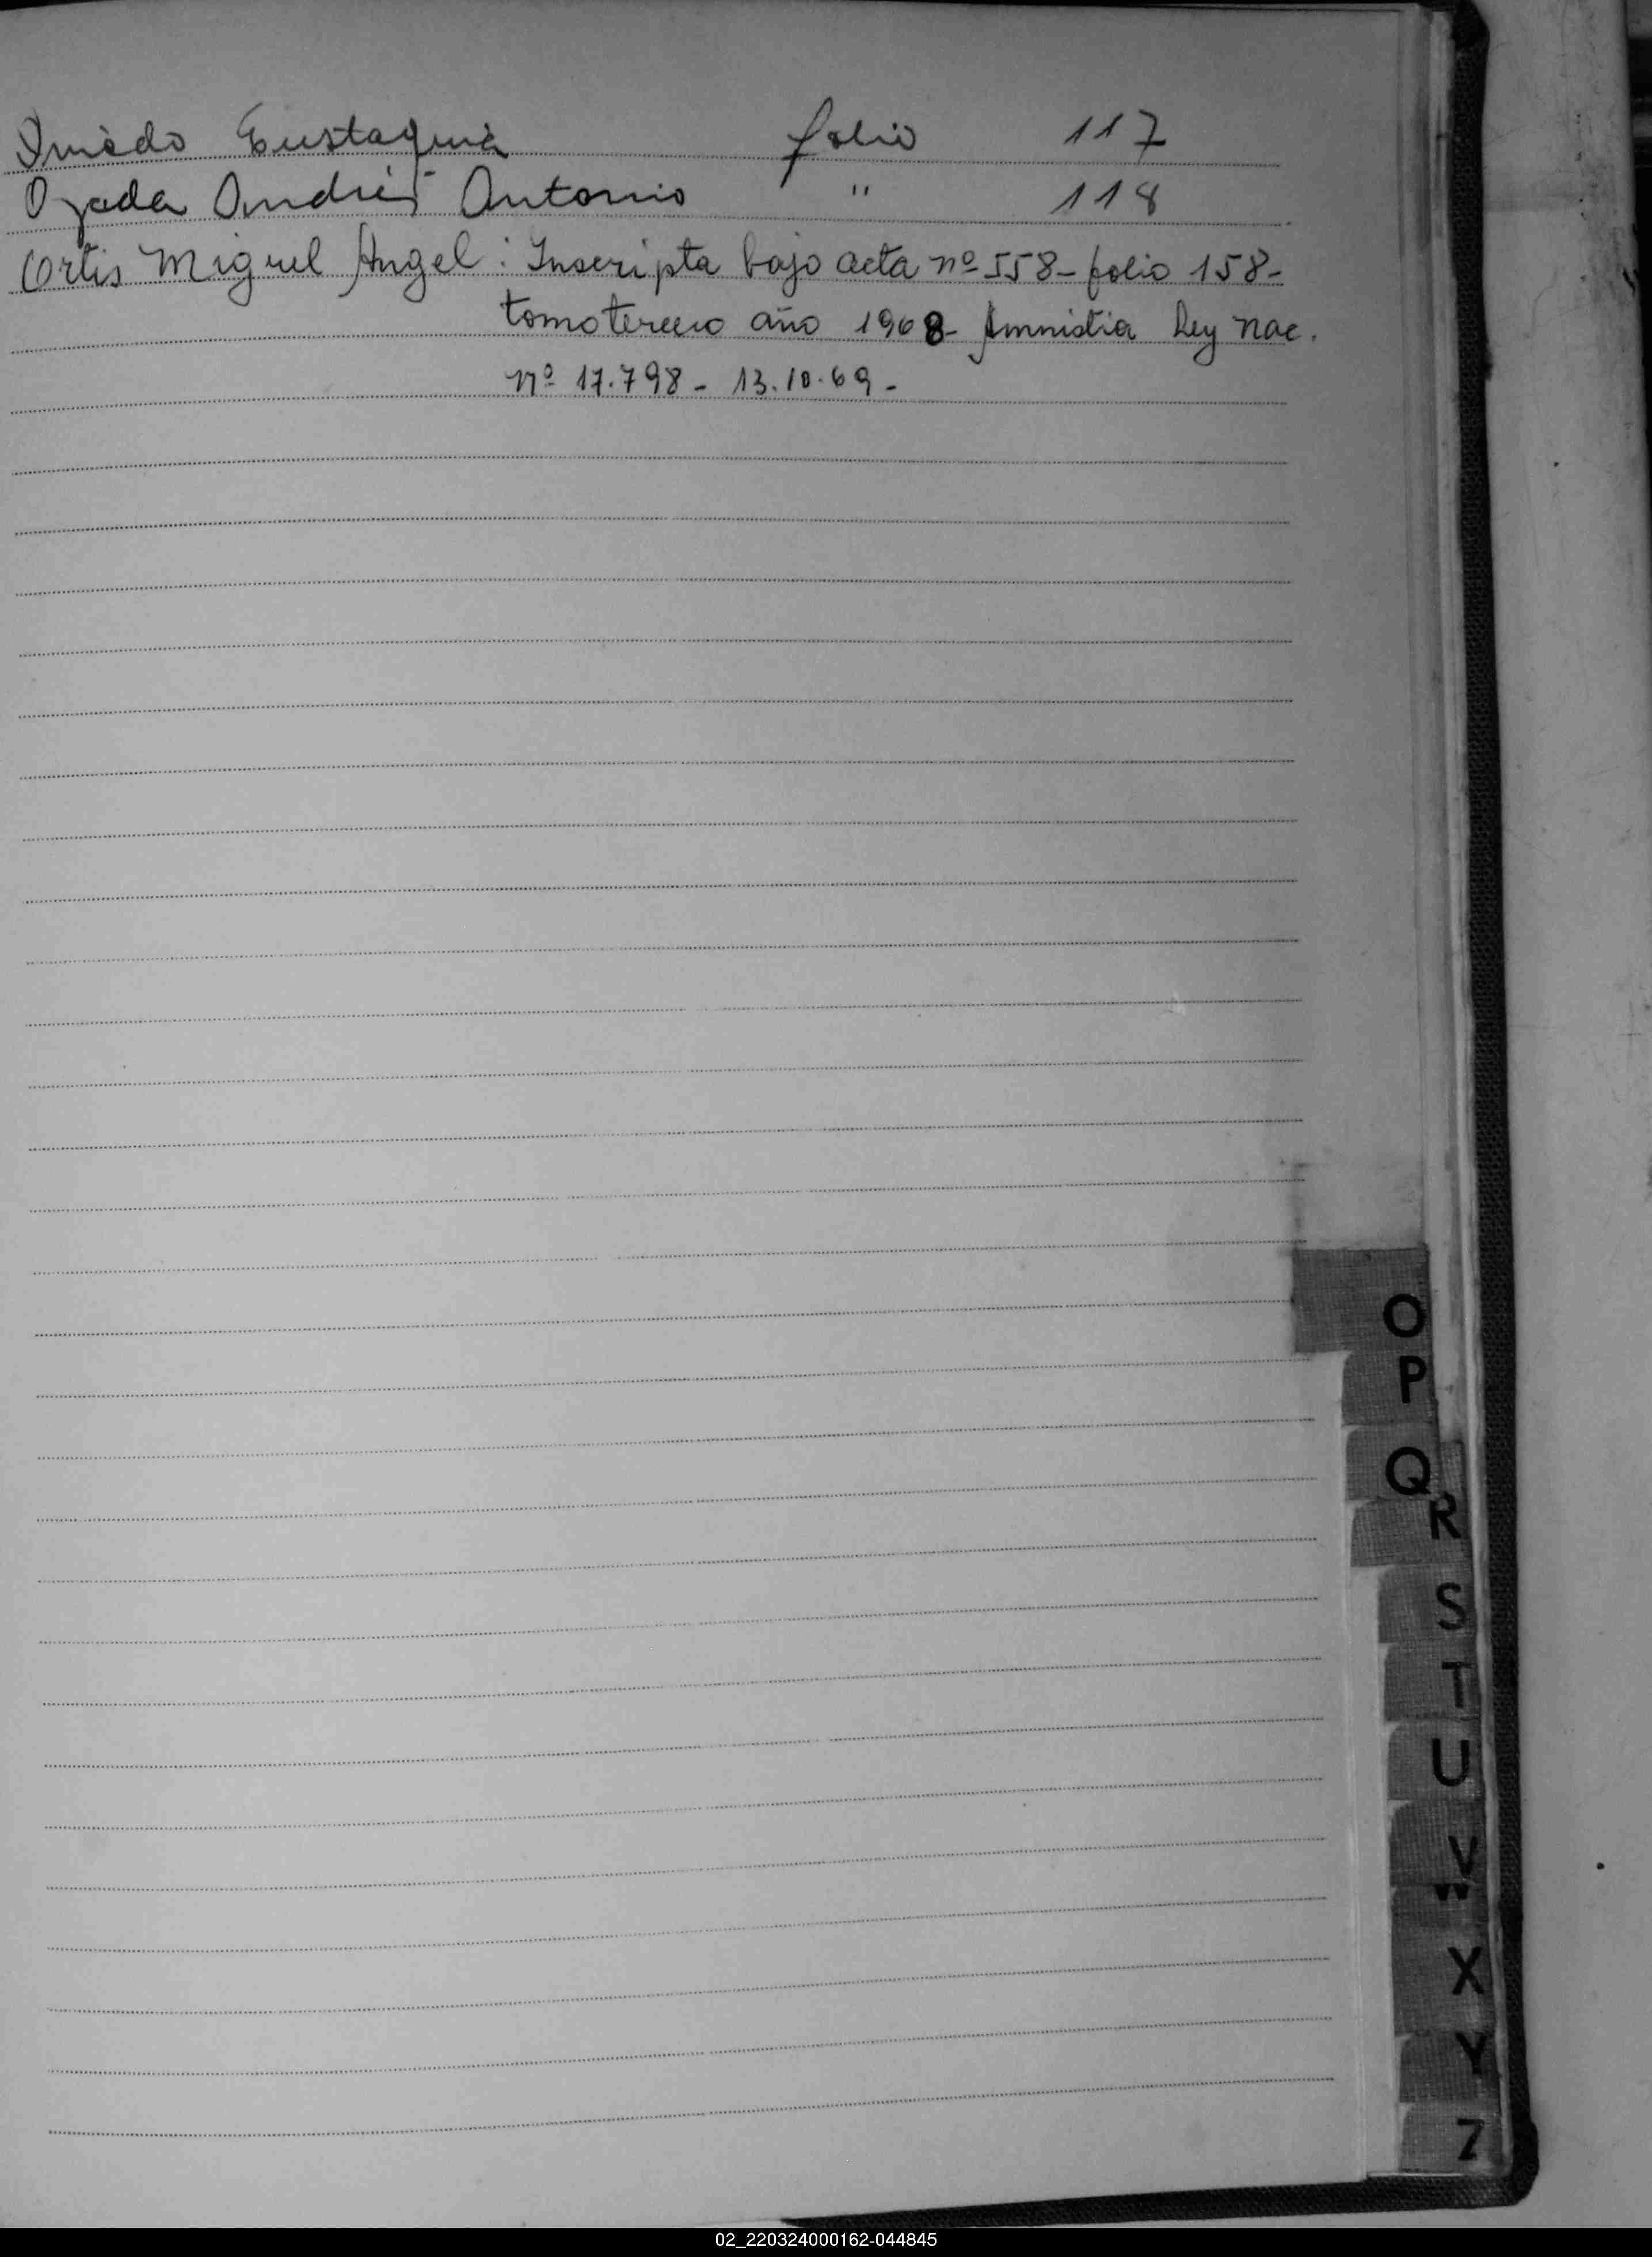 Oviedo Eustaquia folio 117
Ojeda Andrés Antonio " 118
Ortis Miguel Angel: Inscripta bajo acta nº 558- folio 158-
tomo tercero año 1968- Amnistia Ley Nac.
nº 17.798- 13.10.69-
O
P
Q
R
S
T
U
V
W
X
Y
Z
02_220324000162-044845